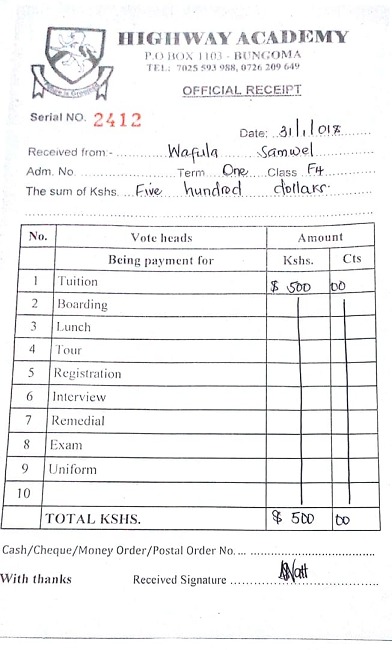 HIGHWAY ACADEMY
P.O BOX 1103 - BUNGOMA
TEL: 7025 593 988, 0726 209 649
OFFICIAL RECEIPT
Serial NO. 2412
Date: 31/1/018
Received from:- Wafula Samwel
Adm. No. Term One Class F4
The sum of Kshs. Five hundred dollars.
No. Vote heads Amount
Being payment for Kshs. Cts
1 Tuition $ 500 00
2 Boarding
3 Lunch
4 Tour
5 Registration
6 Interview
7 Remedial
8 Exam
9 Uniform
10
TOTAL KSHS. $ 500 00
Cash/Cheque/Money Order/Postal Order No.
With thanks Received Signature